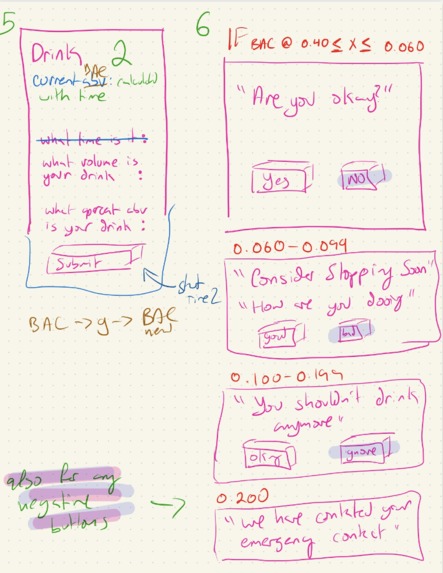 5
Drink 2
BAC
current abv: calculated
with time
what time is it :
what volume is
your drink :
what percent abv
is your drink :
Submit
start
time 2
BAC → g → BAC
new
also for any
negative
buttons →
6
IF BAC @ 0.40 ≤ x ≤ 0.060
"Are you okay?"
Yes
No
0.060-0.099
"Consider Stopping Soon"
"How are you doing"
good
bad
0.100-0.199
"You shouldn't drink
anymore"
okay
ignore
0.200
"we have contacted your
emergency contact"